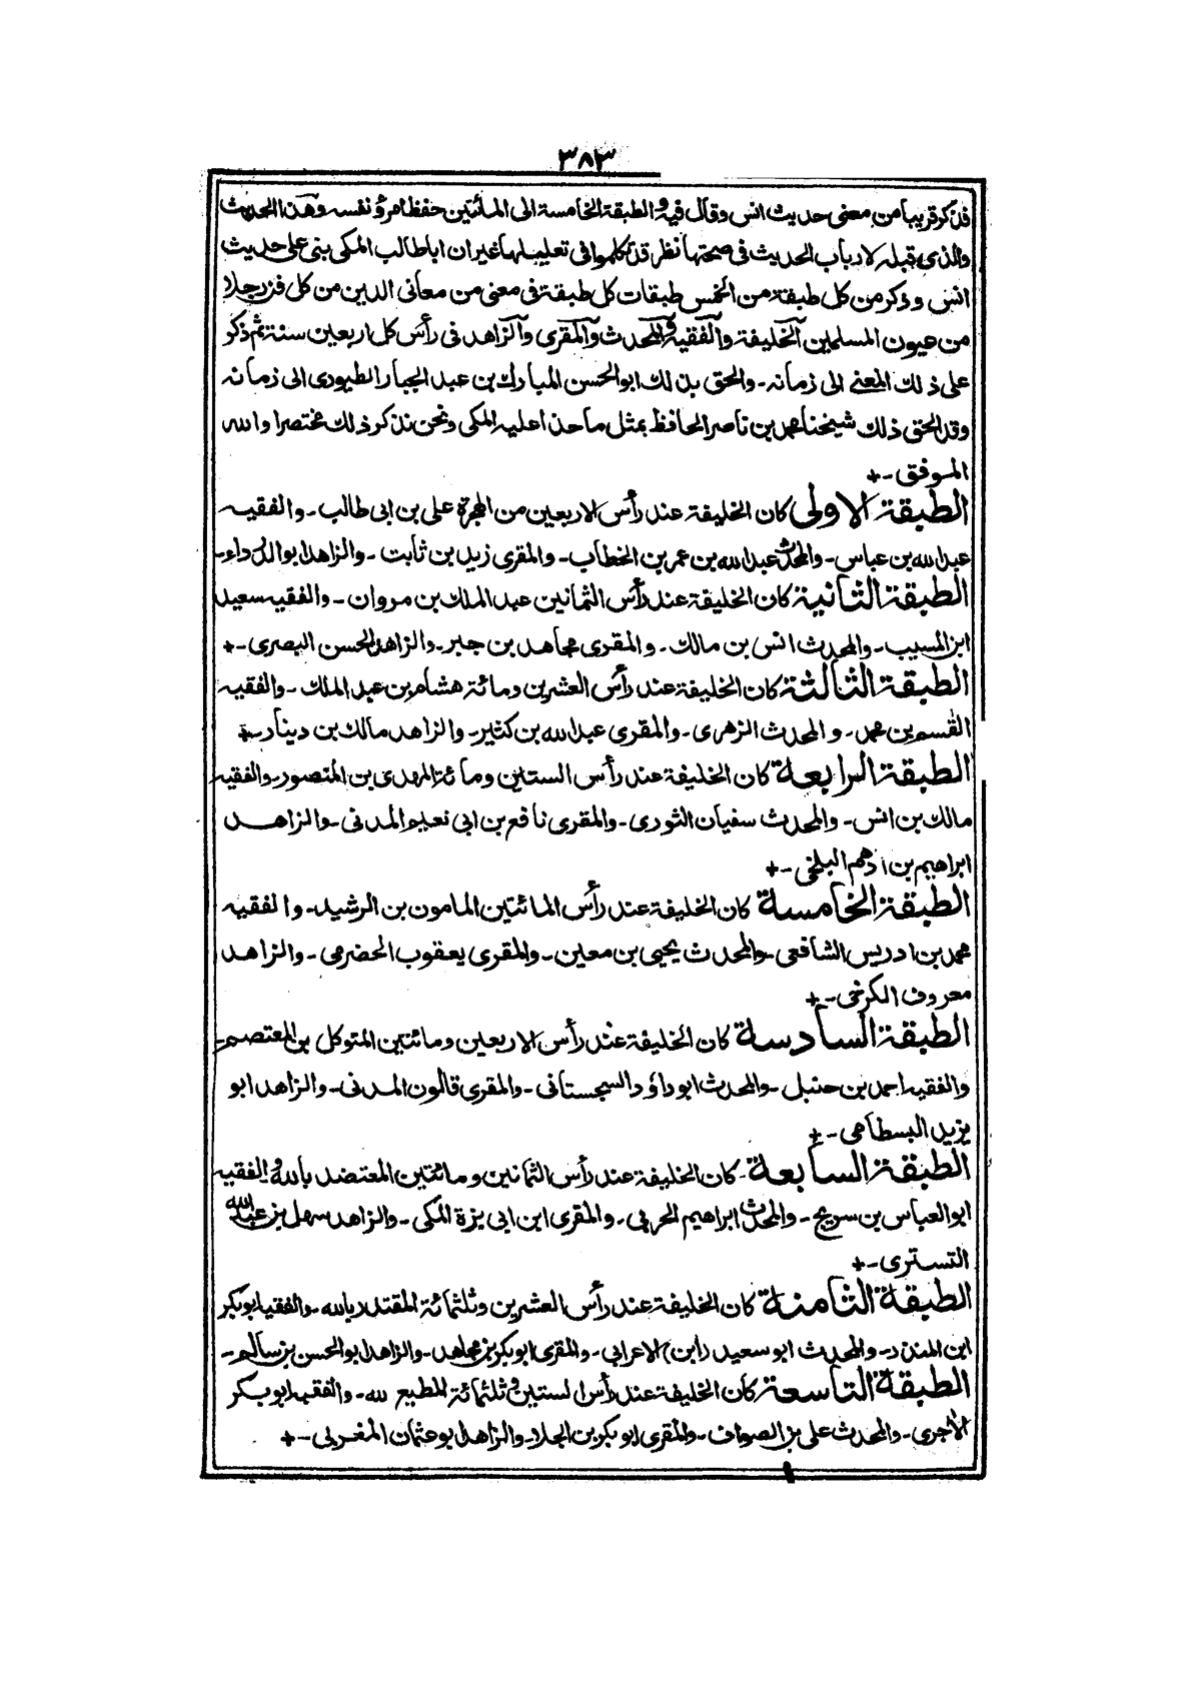 ٣٨٣
فذكر قريبا من معنى حديث انس وقال فيه والطبقة الخامسة الى المائتين حفظ امرؤ نفسه وهذا الحديث
والذى قبله لارباب الحديث فى صحتها نظر قد تكلموا فى تعليلها غير ان اباطالب المكى بنى على حديث
انس وذكر من كل طبقة من الخمس طبقات كل طبقة فى معنى من معانى الدين من كل فن رجلا
من عيون المسلمين الخليفة والفقيه والمحدث والمقرى والزاهد فى رأس كل اربعين سنة ثم ذكر
على ذلك المعنے الى زمانه ـ والحق بذلك ابوالحسن المبارك بن عبد الجبار الطيورى الى زمانه
وقد الحق ذلك شيخنا محمد بن ناصر الحافظ بمثل ما حذا عليه المكى ونحن نذكر ذلك مختصرا والله
الموفق ـ+
الطبقة الاولى كان الخليفة عند رأس الاربعين من الهجرة على بن ابى طالب ـ والفقيه
عبد الله بن عباس ـ والمحدث عبد الله بن عمر بن الخطاب ـ والمقرى زيد بن ثابت ـ والزاهد ابو الدرداء ـ
الطبقة الثانية كان الخليفة عند رأس الثمانين عبد الملك بن مروان ـ والفقيه سعيد
ابن المسيب ـ والمحدث انس بن مالك ـ والمقرى مجاهد بن جبر ـ والزاهد الحسن البصرى ـ+
الطبقة الثالثة كان الخليفة عند رأس العشرين ومائة هشام بن عبد الملك ـ والفقيه
القسم بن محمد ـ والمحدث الزهرى ـ والمقرى عبد الله بن كثير ـ والزاهد مالك بن دينار ـ+
الطبقة الرابعة كان الخليفة عند رأس الستين ومائة المهدى بن المنصور ـ والفقيه
مالك بن انس ـ والمحدث سفيان الثورى ـ والمقرى نافع بن ابى نعيم المدنى ـ والزاهد
ابراهيم بن ادهم البلخى ـ+
الطبقة الخامسة كان الخليفة عند رأس المائتين المامون بن الرشيد ـ والفقيه
محمد بن ادريس الشافعى ـ والمحدث يحيى بن معين ـ والمقرى يعقوب الحضرمى ـ والزاهد
معروف الكرخى ـ+
الطبقة السادسة كان الخليفة عند رأس الاربعين ومائتين المتوكل بن المعتصم ـ
والفقيه احمد بن حنبل ـ والمحدث ابوداؤد السجستانى ـ والمقرى قالون المدنى ـ والزاهد ابو
يزيد البسطامى ـ+
الطبقة السابعة ـ كان الخليفة عند رأس الثمانين ومائتين المعتضد بالله والفقيه
ابوالعباس بن سريج ـ والمحدث ابراهيم الحربى ـ والمقرى ابن ابى بزة المكى ـ والزاهد سهل بن عبد الله
التسترى ـ+
الطبقة الثامنة كان الخليفة عند رأس العشرين وثلثمائة المقتدر بالله ـ والفقيه ابوبكر
ابن المنذر ـ والمحدث ابوسعيد (ابن) الاعرابى ـ والمقرى ابوبكر بن مجاهد ـ والزاهد ابوالحسن بن سالم ـ
الطبقة التاسعة كان الخليفة عند رأس الستين وثلثمائة المطيع لله ـ والفقيه ابوبكر
الآجرى ـ والمحدث على بن الصواف ـ والمقرى ابوبكر بن الجلاد ـ والزاهد ابوعثمان المغربى ـ+